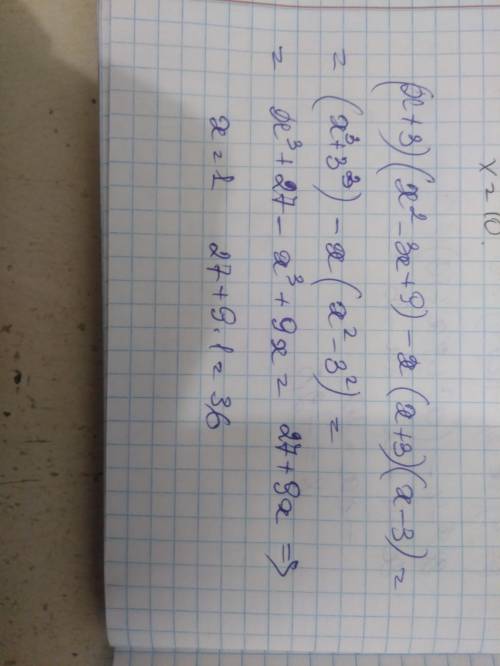 x = 10.
(x+3)(x² - 3x + 9) - x(x+3)(x-3) =
= (x³ + 3³) - x(x² - 3²) =
= x³ + 27 - x³ + 9x = 27 + 9x =>
x = 1 27 + 9·1 = 36